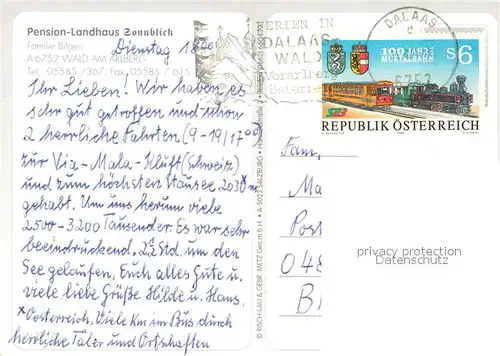 Pension-Landhaus Sonnblick
Familie Bilgeri
A-6752 WALD AM ARLBERG
Tel. 05585/367, Fax 05585/615
Dienstag 18⁰⁰
Ihr Lieben! Wir haben es
sehr gut getroffen und schon
2 herrliche Fahrten (9-19/17⁰⁰)
zur Via-Mala-Kluft (Schweiz)
und zum höchsten Stausee 2030ˣm
gehabt. Um uns herum viele
2500-3200 Tausender. Es war sehr
beeindruckend. 2½ Std. um den
See gelaufen. Euch alles Gute u.
viele liebe Grüße Hilde u. Hans.
ˣOesterreich. Viele Km im Bus durch
herrliche Täler und Ortschaften
© RISCH-LAU & GEBR. METZ Ges.m.b.H. • A-5023 SALZBURG
FERIEN IN
DALAAS
WALD
Vorarlberg
Österreich
DALAAS
6752
100 JAHRE
MURTALBAHN
S6
REPUBLIK ÖSTERREICH
Fam.
Ma
Post
048
B
privacy protection
Datenschutz